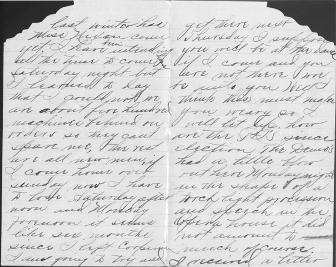 last winter has
Miss come
yet I have intending
all the time to come
Saturday night but
I learned to day
that I could not we
are about five hundred
machines behind on
orders so they cant
spare me, the rest
are all new men, if
I come home over
Sunday now I have
to lose Saturday after
noon and Monday
forenoon it seems
like six months
since I left
I was going to try and
yet here next
Thursday I suppose
you will be at the
if I come and you
are not here I
be as to you Well
think I must make
you weary so
will let up. how
are the since
election the Demos
had a little blow
out here Monday night
in the shape of a
torch light procession
and speech in the
opera house it did
not amount to
much of course
I received a letter